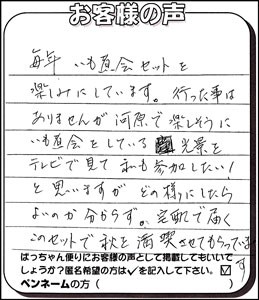 お客様の声
毎年 いも煮会セットを
楽しみにしています。行った事は
ありませんが 河原で楽しそうに
いも煮会をしている 光景を
テレビで見て 私も参加したい！
と思いますが どの様にしたら
よいのか分からず。宅配で届く
このセットで秋を満喫させてもらっています
ばっちゃん便りにお客様の声として掲載してもいいで
しょうか？匿名希望の方は✓を記入して下さい。☑
ペンネームの方（　　　　　　　　　）